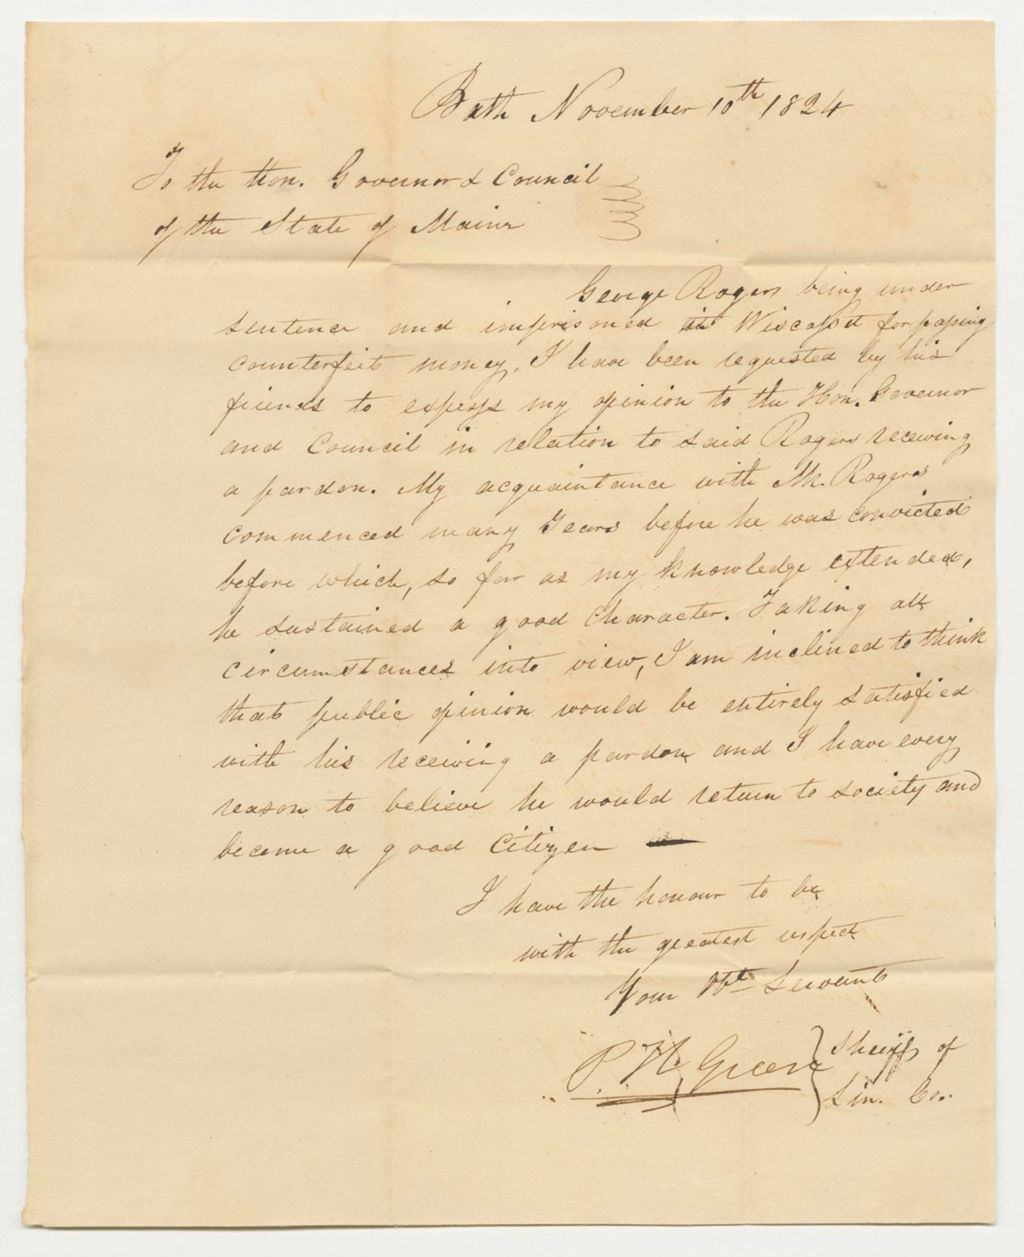 Bath November 10th 1824
To the Hon. Governor & Council
of the State of Maine
George Rogers being under
sentence and imprisoned in Wiscasset for passing
counterfeit money, I have been requested by his
friends to express my opinion to the Hon. Governor
and Council in relation to said Rogers receiving
a pardon. My acquaintance with Mr. Rogers
commenced many years before he was convicted
before which, so far as my knowledge extended,
he sustained a good character. Taking all
circumstances into view, I am inclined to think
that public opinion would be entirely satisfied
with his receiving a pardon and I have every
reason to believe he would return to society and
become a good Citizen
I have the honour to be
with the greatest respect
Your Obt Servant
P. H. Green } Sheriff of
Lin. Co.